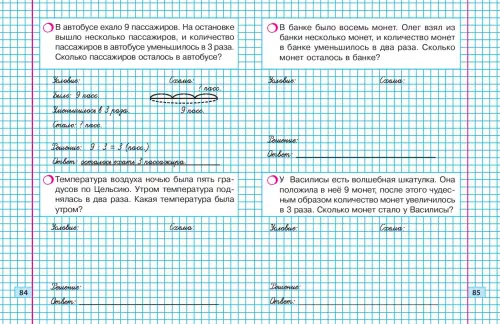 В автобусе ехало 9 пассажиров. На остановке
вышло несколько пассажиров, и количество
пассажиров в автобусе уменьшилось в 3 раза.
Сколько пассажиров осталось в автобусе?
Условие:
Схема:
Было: 9 пасс.
? пасс.
Уменьшилось в 3 раза.
9 пасс.
Стало: ? пасс.
Решение: 9 : 3 = 3 (пасс.)
Ответ: осталось ехать 3 пассажира.
Температура воздуха ночью была пять гра-
дусов по Цельсию. Утром температура под-
нялась в два раза. Какая температура была
утром?
Условие:
Схема:
Решение:
Ответ:
84
В банке было восемь монет. Олег взял из
банки несколько монет, и количество монет
в банке уменьшилось в два раза. Сколько
монет осталось в банке?
Условие:
Схема:
Решение:
Ответ:
У Василисы есть волшебная шкатулка. Она
положила в неё 9 монет, после этого чудес-
ным образом количество монет увеличилось
в 3 раза. Сколько монет стало у Василисы?
Условие:
Схема:
Решение:
Ответ:
85